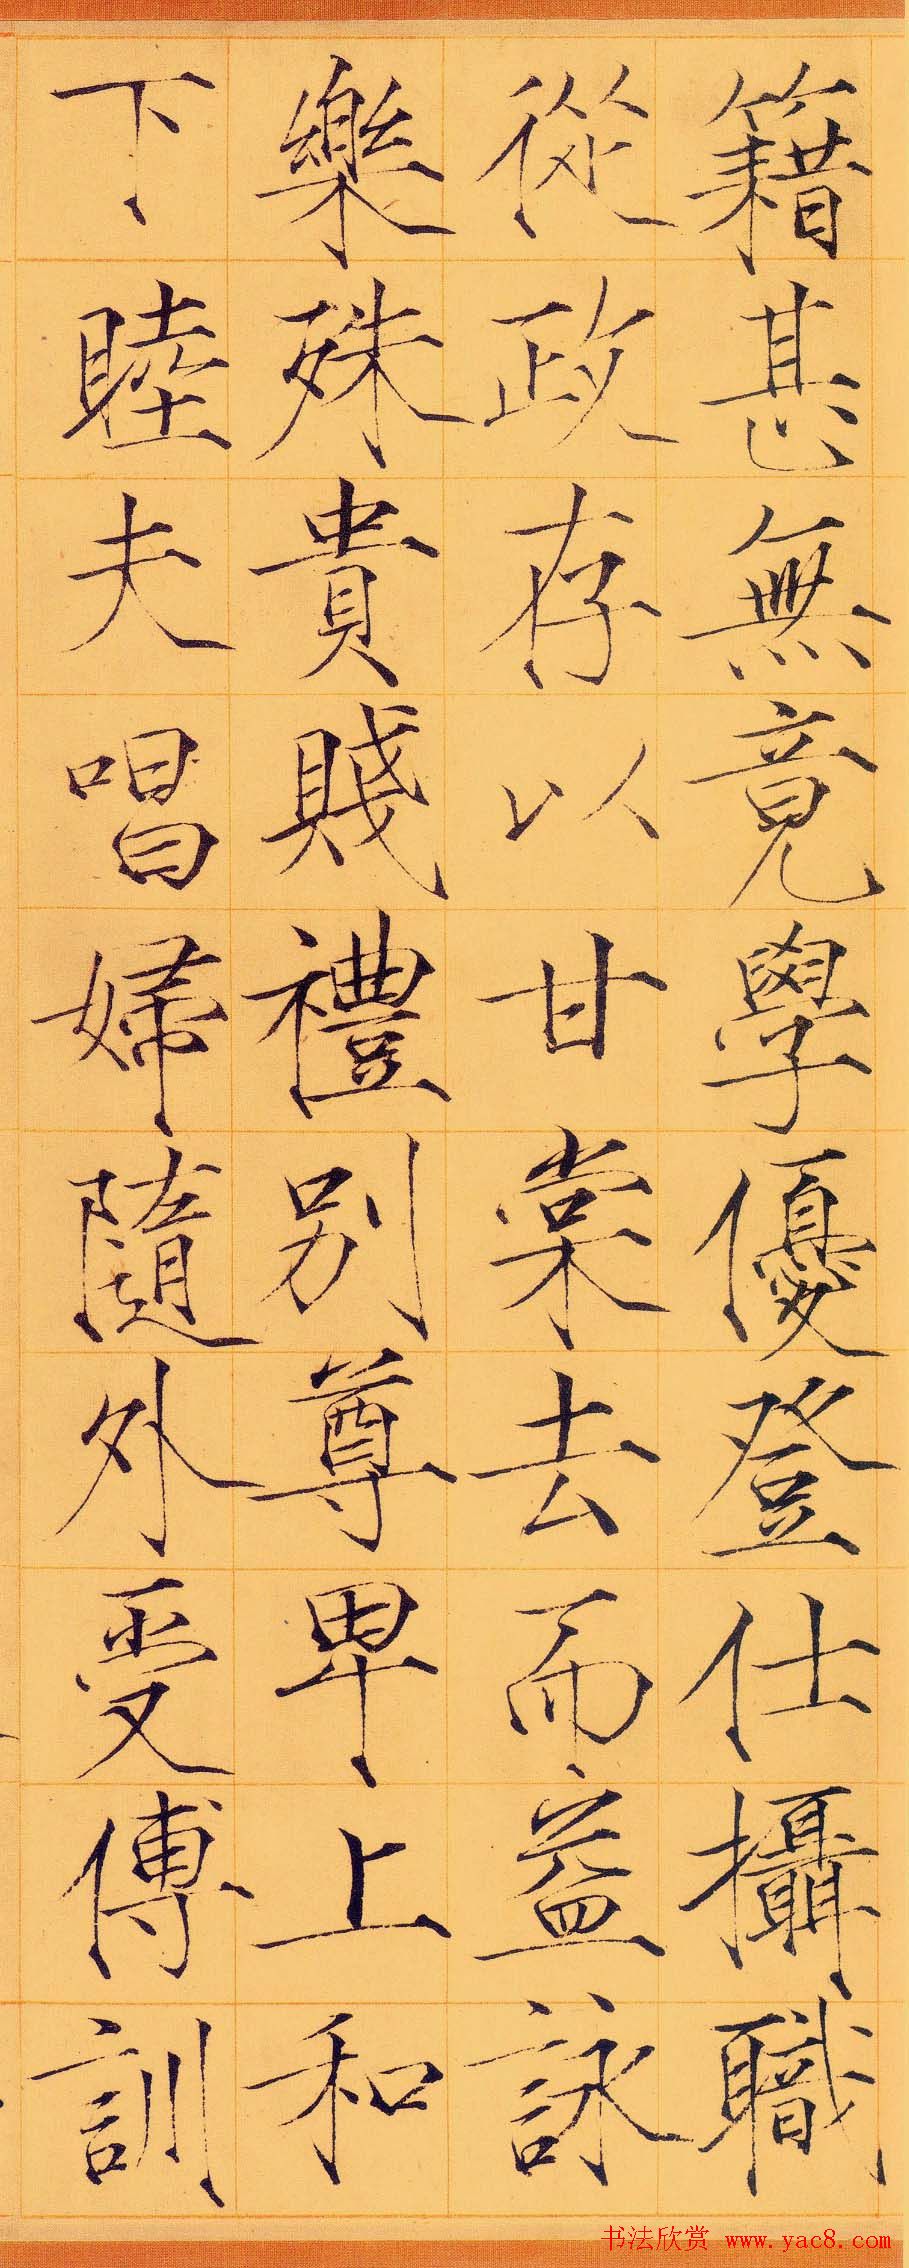 籍甚無竟學優登仕攝職
從政存以甘棠去而益詠
樂殊貴賤禮別尊卑上和
下睦夫唱婦隨外受傅訓
书法欣赏 www.yac8.com